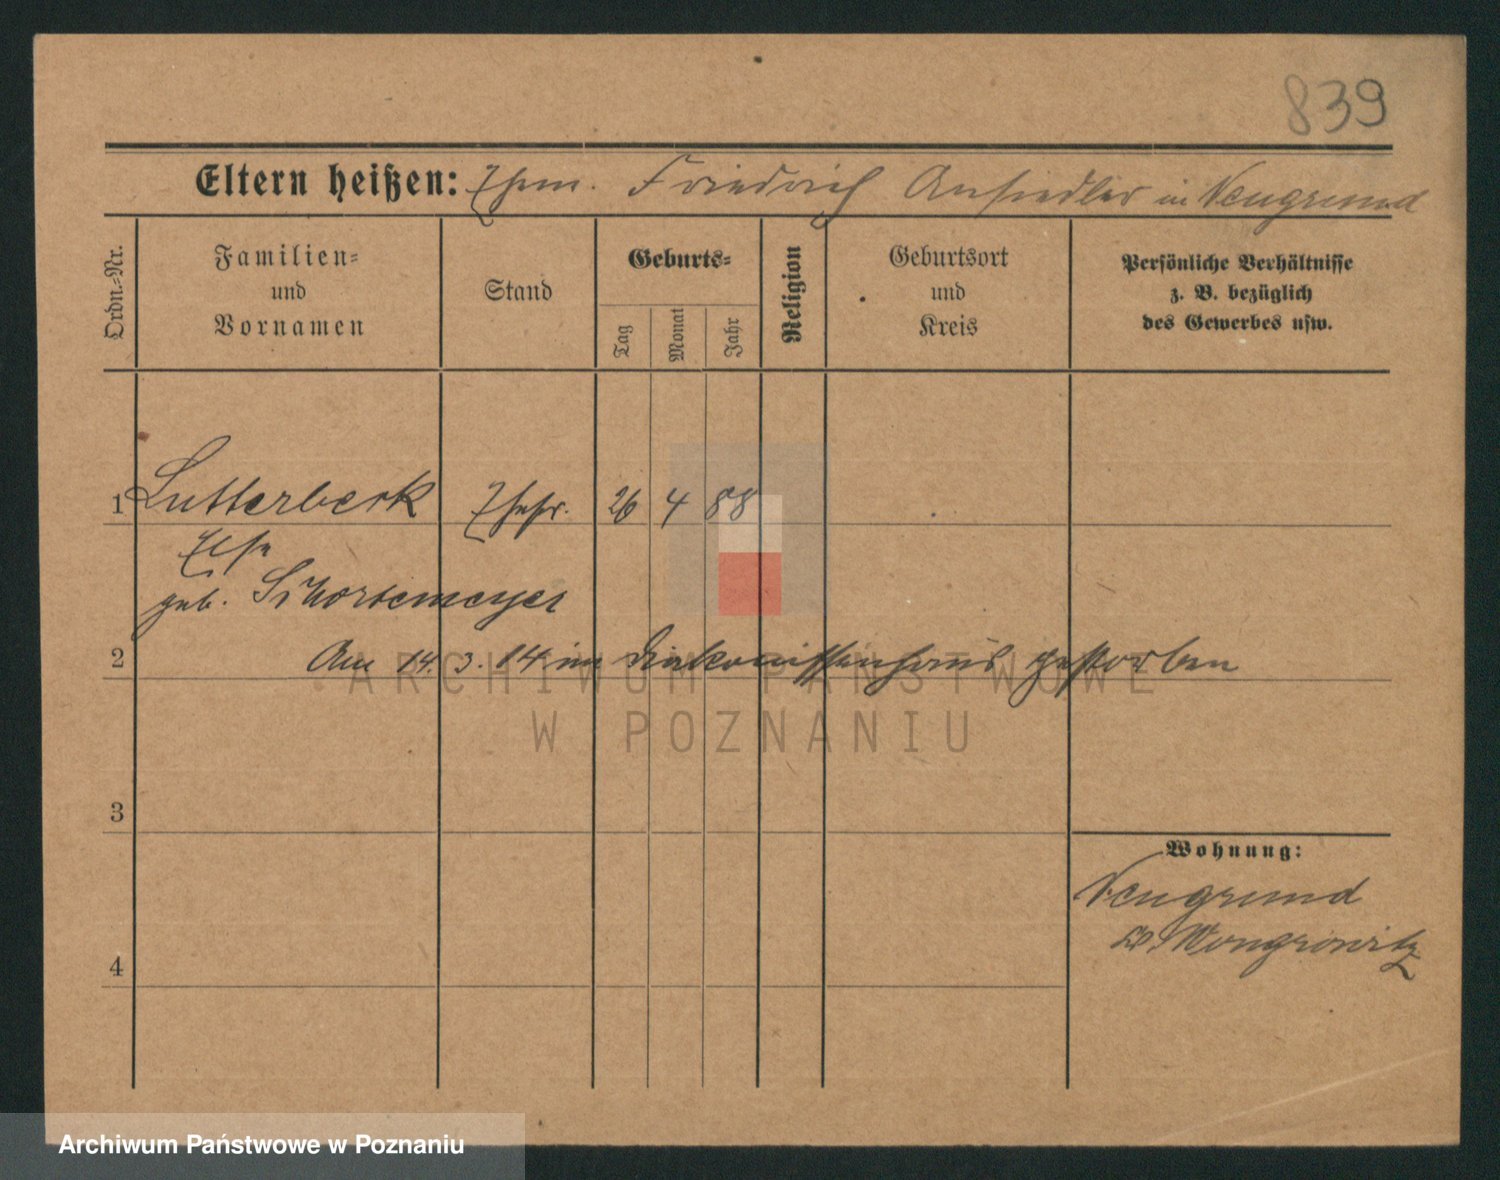 839
Eltern heißen: Ehem. Friedrich Ansiedler in Neugrund
Ordn.=Nr.
Familien=
und
Vornamen
Stand
Geburts=
Tag
Monat
Jahr
Religion
Geburtsort
und
Kreis
Persönliche Verhältnisse
z. B. bezüglich
des Gewerbes usw.
1 Lutterbeck Ehefr. 26 4 88
Else
geb. Schortemeyer
2 Am 14. 3. 14 im Diakonissenhaus gestorben
ARCHIWUM PAŃSTWOWE
W POZNANIU
3
Wohnung:
Neugrund
Wongrowitz
4
Archiwum Państwowe w Poznaniu